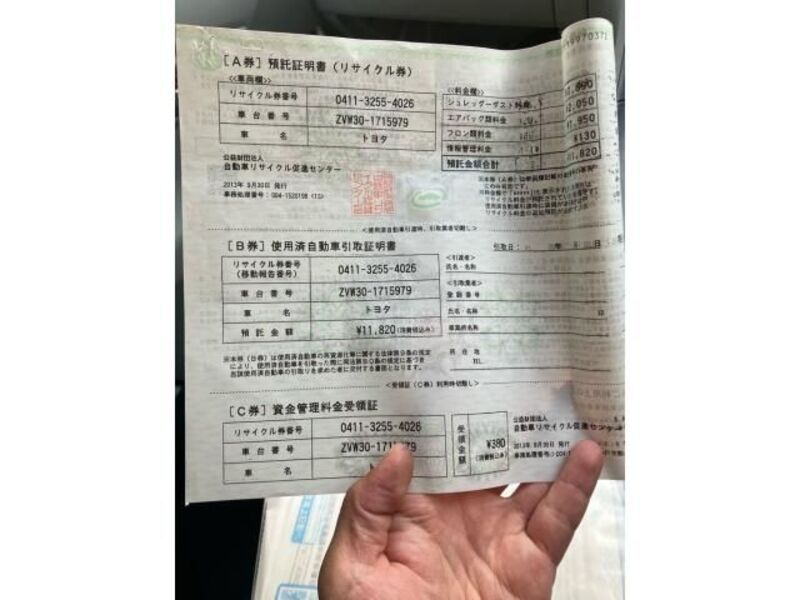 [A券] 預託証明書 (リサイクル券)
<<車両欄>>
リサイクル券番号 0411-3255-4026
車台番号 ZVW30-1715979
車名 トヨタ
<<料金欄>>
シュレッダーダスト料金
エアバッグ類料金 2,050
フロン類料金 1,950
情報管理料金 ¥130
預託金額合計 1,820
公益財団法人
自動車リサイクル促進センター
2013年 9月30日 発行
<使用済自動車引渡時、引取業者切離し>
[B券] 使用済自動車引取証明書
引取日:
リサイクル券番号
(移動報告番号) 0411-3255-4026
車台番号 ZVW30-1715979
車名 トヨタ
預託金額 ¥11,820(消費税込み)
<引渡者>
氏名・名称
<引取業者>
登録番号
氏名・名称 印
事業所名称
所在地
TEL
※本券(B券)は使用済自動車の再資源化等に関する法律第80条の規定
により、使用済自動車を引取った際に同法第80条の規定に基づき
当該使用済自動車の引取りを求めた者に交付する書面となります。
<受領証(C券)利用時切離し>
[C券] 資金管理料金受領証
リサイクル券番号 0411-3255-4026
車台番号 ZVW30-171
車名
受領金額 ¥380
(消費税込み)
公益財団法人
自動車リサイクル促進セン
2013年 9月30日 発行